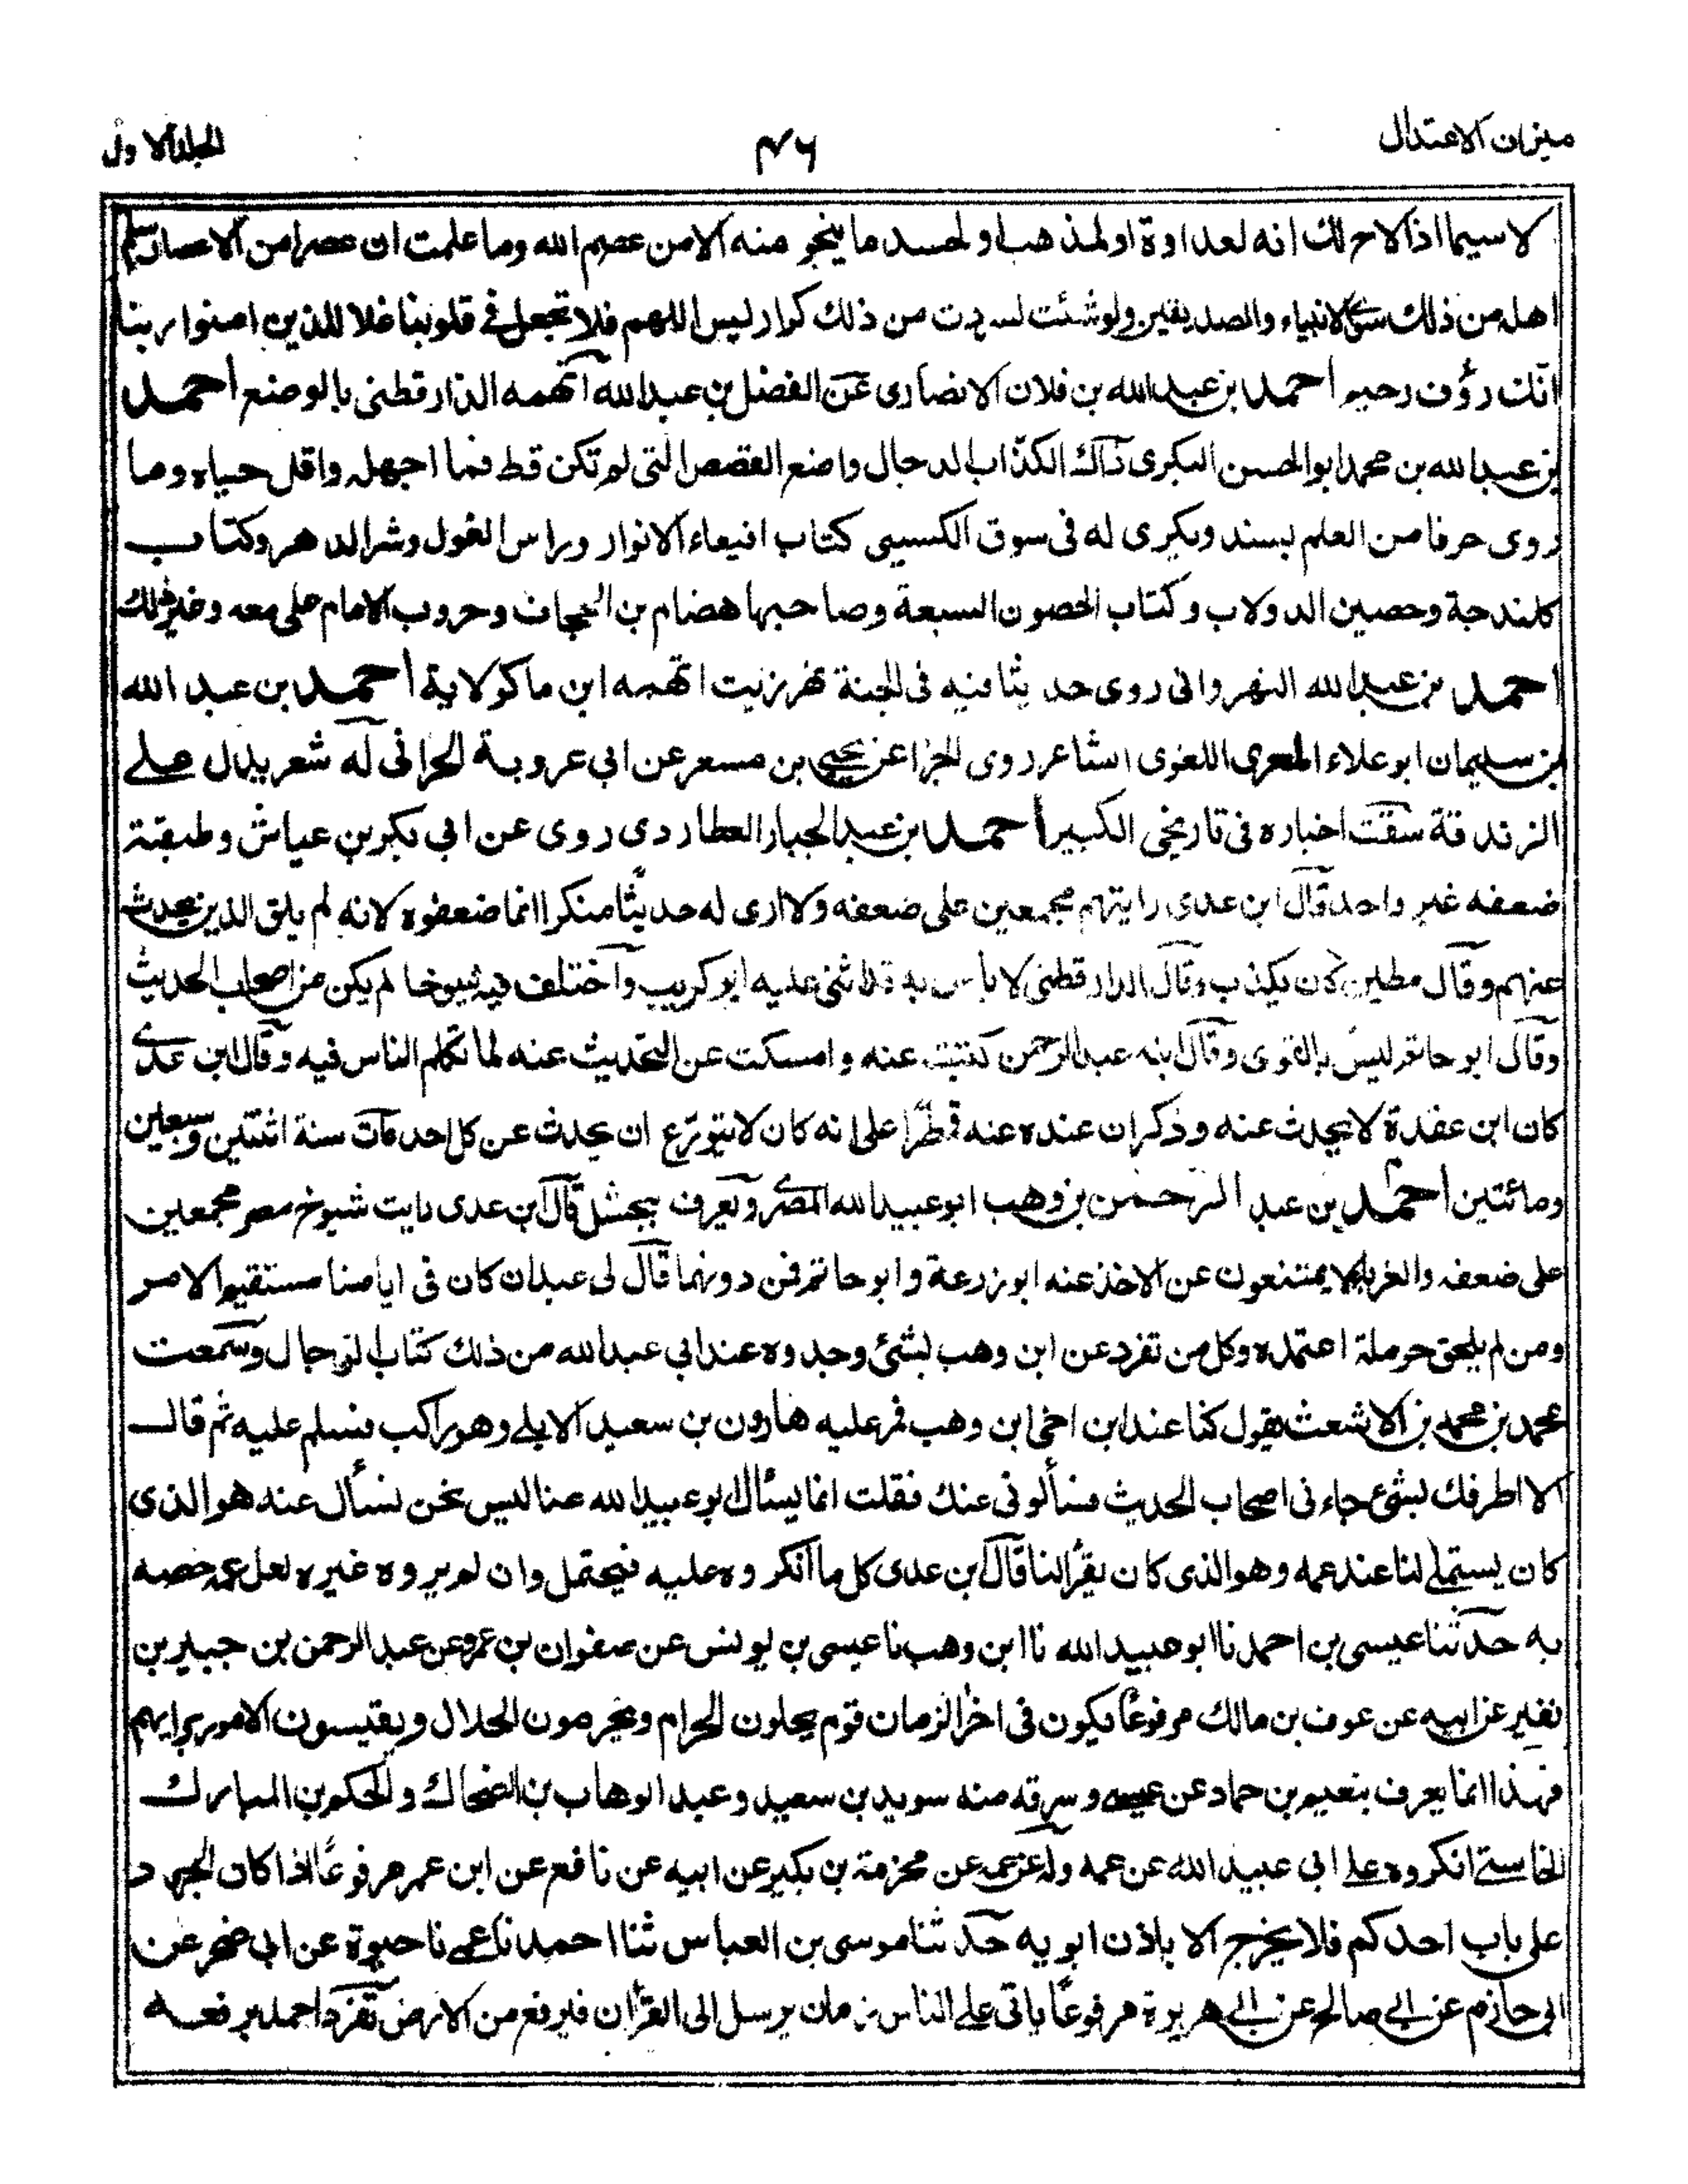 ميزان الاعتدال
٤٦
المجلد الاول
لا سيما اذا لاح لك انه لعداوة او لمذهب او لحسد ما ينجو منه الا من عصم الله وما علمت ان عصرا من الاعصار سلم
اهله من ذلك سوى الانبياء والصديقين ولو شئت لسردت من ذلك كراريس اللهم فلا تجعل في قلوبنا غلا للذين امنوا ربنا
انك رؤف رحيم احمد بن عبد الله بن فلان الانصارى عن الفضل بن عبد الله اتهمه الدارقطنى بالوضع احمد
بن عبد الله بن محمد ابو الحسن البكرى ذاك الكذاب الدجال واضع القصص التى لم تكن قط فما اجهله واقل حياه وما
روى حرفا من العلم بسند ويكرى له فى سوق الكتبيين كتاب انتهاء الانوار وراس الغول وشر الدهر وكتاب
كلندجة وحصين الدولاب وكتاب الحصون السبعة وصاحبها هضام بن الحجاف وحروب الامام على معه وغير ذلك
احمد بن عبد الله النهروانى روى حديثا فيه فى الجنة نهر زيت اتهمه ابن ماكولا به احمد بن عبد الله
بن سليمان ابو علاء المعرى اللغوى الشاعر روى الجزا عن يحيى بن مسعر عن ابي عروبة الحرانى له شعر يدل على
الزندقة سقت اخباره فى تاريخى الكبير احمد بن عبد الجبار العطاردى روى عن ابي بكر بن عياش وطبقته
ضعفه غير واحد قال ابن عدى رايتهم مجمعين على ضعفه ولا ارى له حديثا منكرا انما ضعفوه لانه لم يلق الذين يحدث
عنهم وقال مطين كان يكذب وقال الدارقطنى لا باس به قد اثنى عليه ابو كريب واختلف فيه شيوخنا لم يكن من اصحاب الحديث
وقال ابو حاتم ليس بالقوى وقال ابنه عبد الرحمن كتبت عنه وامسكت عن التحديث عنه لما تكلم الناس فيه وقال ابن عدى
كان ابن عقدة لا يحدث عنه وذكر ان عنده عنه قمطرا على انه كان لا يتورع ان يحدث عن كل احد مات سنة اثنتين وسبعين
ومائتين احمد بن عبد الرحمن بن وهب ابو عبيد الله المصرى ويعرف ببحشل قال ابن عدى رايت شيوخ مصر مجمعين
على ضعفه والغرباء لا يمتنعون عن الاخذ عنه ابو زرعة وابو حاتم فمن دونهما قال لى عبدان كان فى ايامنا مستقيم الامر
ومن لم يلحق حرملة اعتمده وكل من تفرد عن ابن وهب بشئ وجدوه عند ابي عبد الله من ذلك كتاب الرجال وسمعت
محمد بن محمد بن الاشعث يقول كنا عند ابن اخى ابن وهب فمر عليه هارون بن سعيد الايلى وهو راكب فسلم عليه ثم قال
الا اطرفك بشئ جاءنى اصحاب الحديث فسألونى عنك فقلت انما يسأل ابو عبيد الله عنا ليس نحن نسأل عنه هو الذى
كان يستملى لنا عند عمه وهو الذى كان يقرأ لنا قال ابن عدى كل ما انكروه عليه فيحتمل وان لم يروه غيره لعل عمه خصه
به حدثنا عيسى بن احمد نا ابو عبيد الله نا ابن وهب نا عيسى بن يونس عن صفوان بن عمرو عن عبد الرحمن بن جبير بن
نفير عن ابيه عن عوف بن مالك مرفوعا يكون فى اخر الزمان قوم يحلون الحرام ويحرمون الحلال ويقيسون الامور برايهم
فهذا انما يعرف بنعيم بن حماد عن عيسى وسرقه منه سويد بن سعيد وعبد الوهاب بن الضحاك والحكم بن المبارك
الخاستى انكروه على ابي عبيد الله عن عمه وله عن عمه عن مخرمة بن بكير عن ابيه عن نافع عن ابن عمر مرفوعا اذا كان الجهاد
على باب احدكم فلا يخرج الا باذن ابويه حدثنا موسى بن العباس ثنا احمد نا عمى نا حيوة عن ابي صخر عن
ابى حازم عن ابي صالح عن ابي هريرة مرفوعا ياتى على الناس زمان يرسل الى القرأن فيرفع من الارض تفرد احمد برفعه